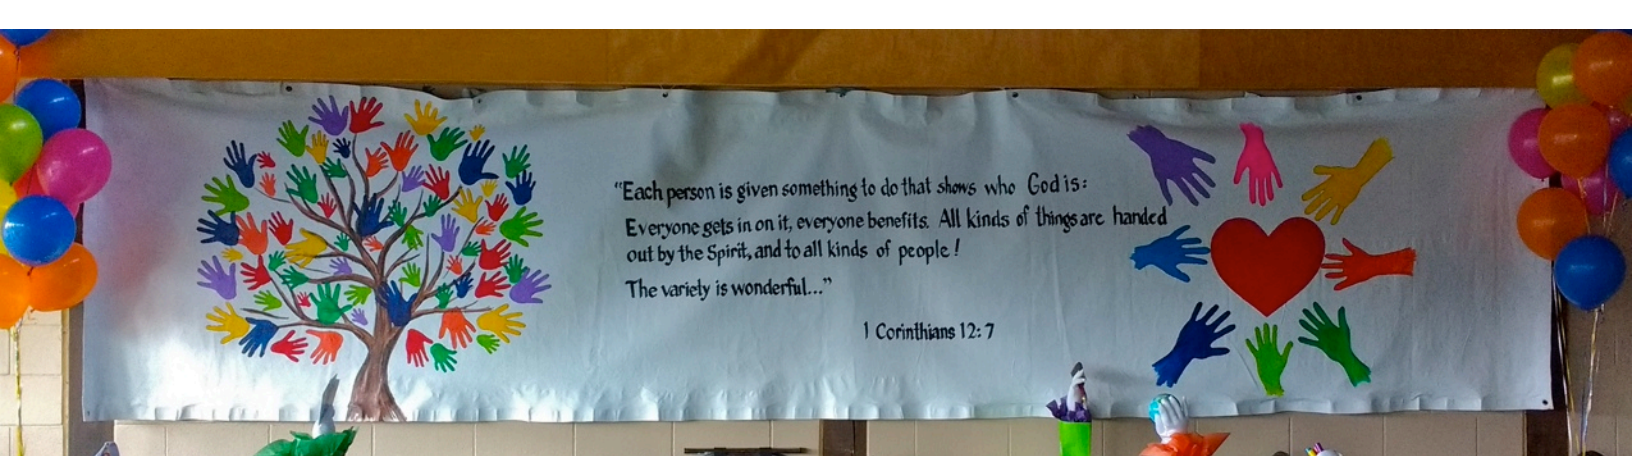 "Each person is given something to do that shows who God is:
Everyone gets in on it, everyone benefits. All kinds of things are handed
out by the Spirit, and to all kinds of people!
The variety is wonderful..."
1 Corinthians 12:7